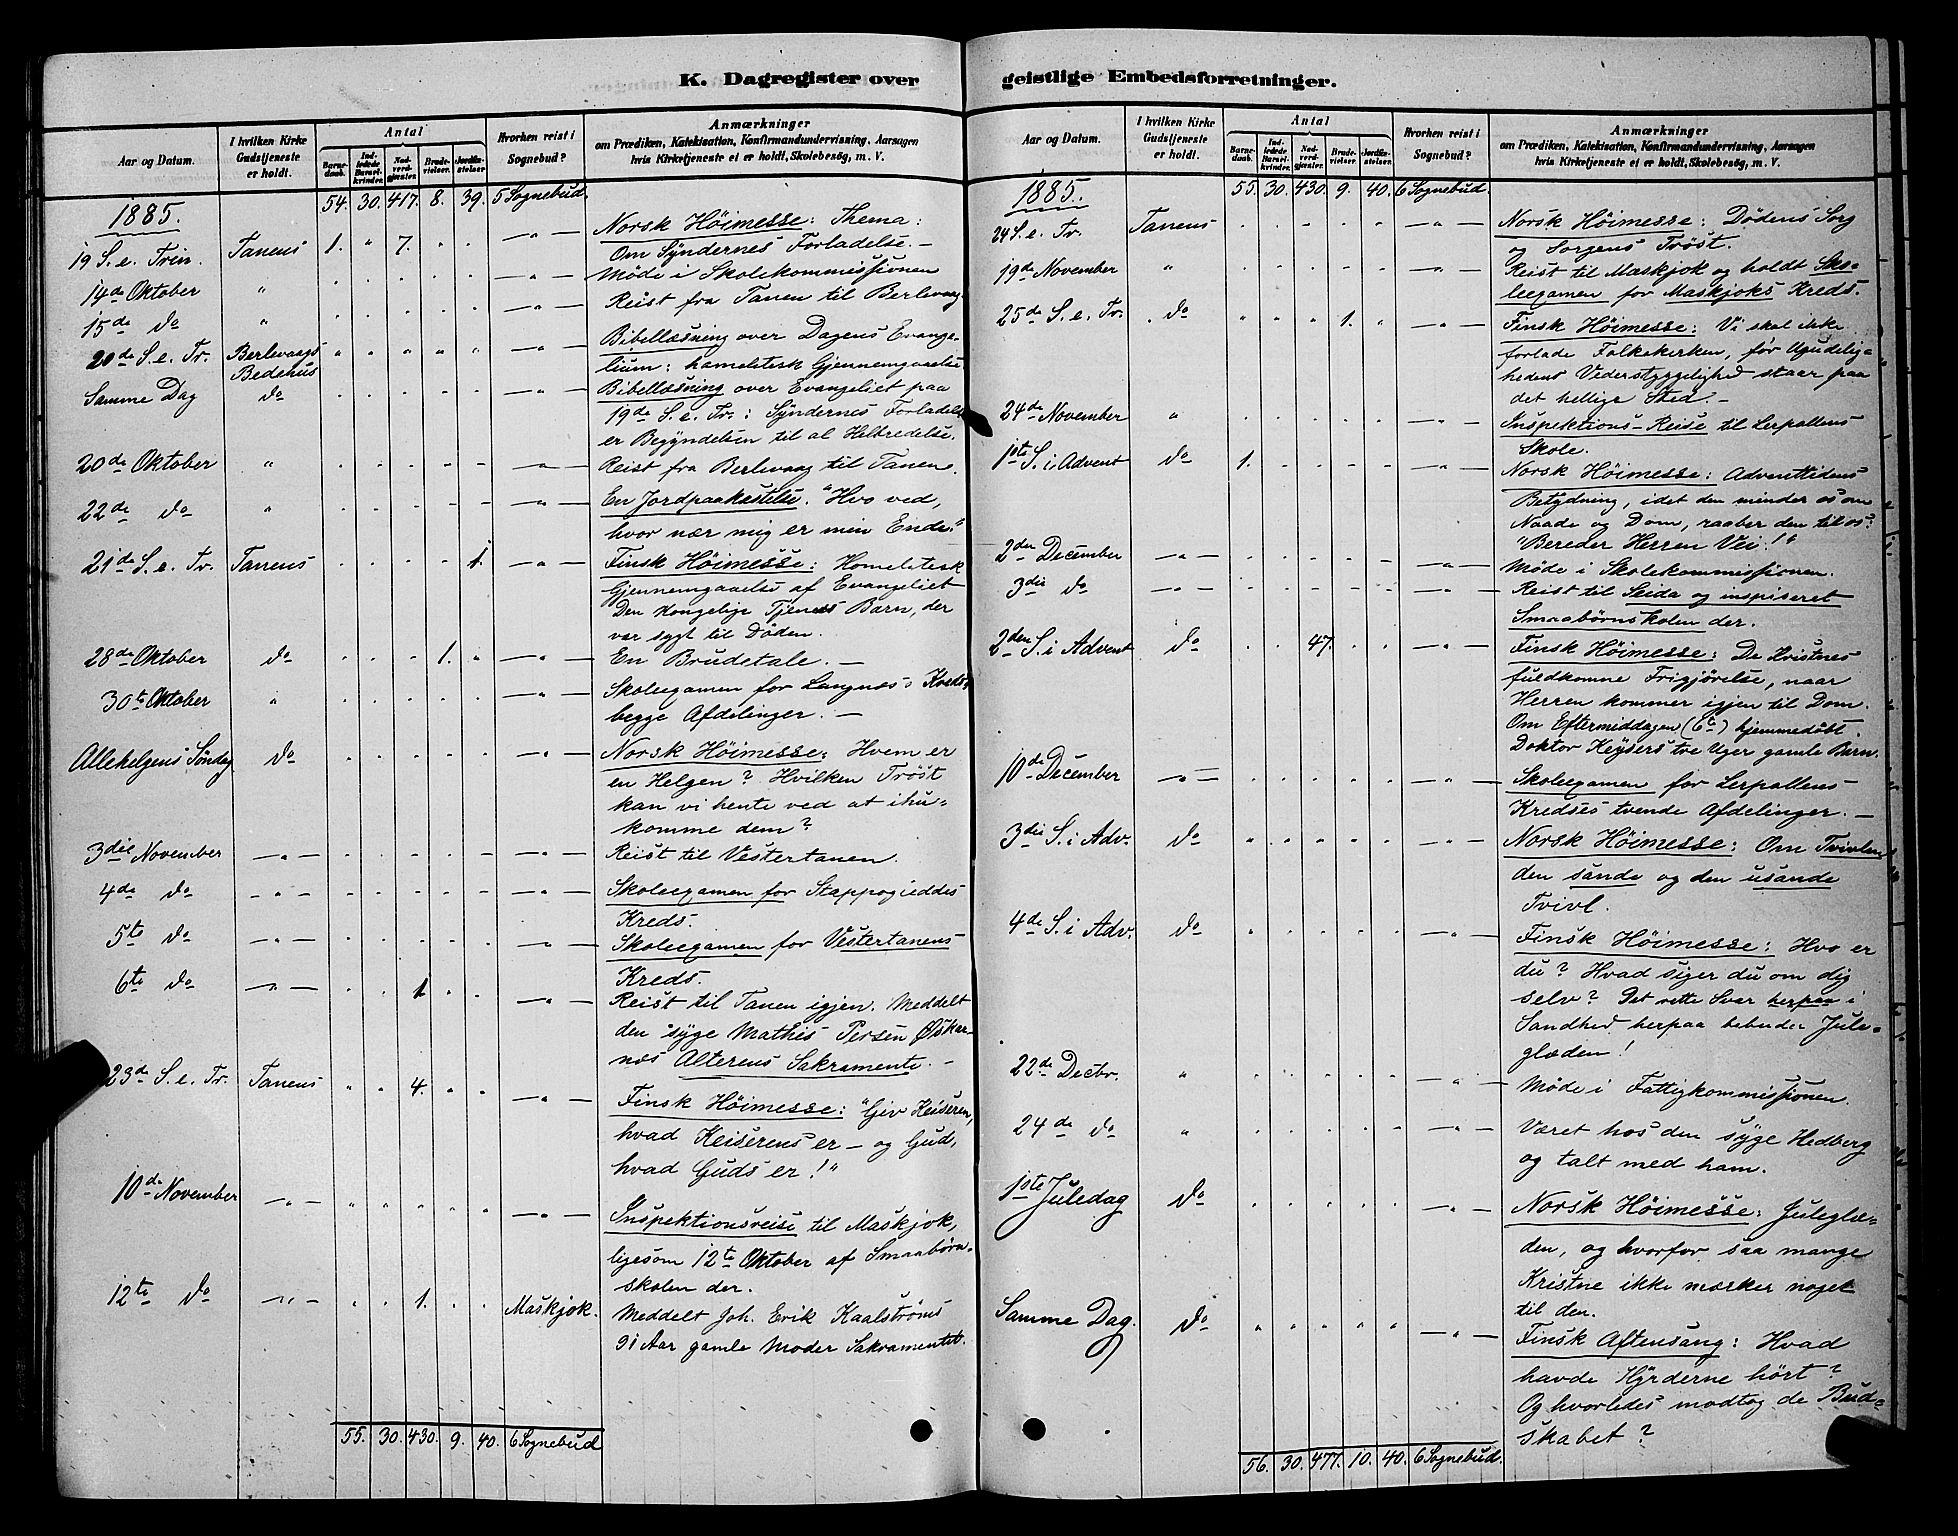 K. Dagregister over
Aar og Datum. | I hvilken Kirke Gudstjeneste er holdt. | Antal | Barnedaab. | Indledede Barselkvinder. | Nadverdgjæster. | Brudevielser. | Jordfæstelser | Hvorhen reist i Sognebud? | Anmærkninger om Prædiken, Katekisation, Konfirmandundervisning, Aarsagen hvis Kirketjeneste ei er holdt, Skolebesøg, m. V.
54. 30. 417. 8. 39. 5 Sognebud.
1885.
19 S. e. Trin. Tanens 1. " 7. . . — " — Norsk Höimesse: Thema:
Om Syndernes Forladelse. —
14de Oktober " — " — Möde i Skolekommissionen
15de do " — " — Reist fra Tanen til Berlevaag.
20de S. e. Tr. Berlevaags Bedehus " " " " " — " — Bibellæsning over Dagens Evange-
lium: homeletisk Gjennemgaaelse
Samme Dag do — " — Bibellæsning over Evangeliet paa
19de S. e. Tr.: Syndernes Forladelse
er Begyndelsen til al Helbredelse.
20de Oktober " — " — Reist fra Berlevaag til Tanen.
22de do " — " — En Jordpaakastelse. "Hvo ved,
hvor nær mig er min Ende."
21de S. e. Tr. Tanens 1. — " — Finsk Höimesse: Homeletisk
Gjennemgaaelse af Evangeliet
Den Kongelige Tjeners Barn, der
var sygt til Döden.
28de Oktober do 1. " — " — En Brudetale. —
30te Oktober " — " — Skoleexamen for Langnæs's Kreds,
begge Afdelinger. —
Allehelgens Söndag do — " — Norsk Höimesse: Hvem er
en Helgen? Hvilken Tröst
kan vi hente ved at ihu-
komme dem?
3die November — " — — " — Reist til Vestertanen.
4de do — " — — " — Skoleexamen for Stappogieddes
Kreds.
5te do — " — — " — Skoleexamen for Vestertanens
Kreds.
6te do — " — 1. — " — Reist til Tanen igjen. Meddelt
den syge Mathis Persen
Alterens Sakramente. —
23de S. e. Tr. Tanens " " 4. . . — " — Finsk Höimesse: "Giv Keiseren,
hvad Keiserens er — og Gud,
hvad Guds er!"
10de November — " — — " — Inspektionsreise til Maskjok,
ligesom 12te Oktober af Smaabörn-
skolen der.
12te do — " — 1. Maskjok. Meddelt Joh. Erik Kaalströms
91 Aar gamle Moder Sakramentet.
55. 30. 430. 9. 40. 6 Sognebud
geistlige Embedsforretninger.
Aar og Datum. | I hvilken Kirke Gudstjeneste er holdt. | Antal | Barnedaab. | Indledede Barselkvinder. | Nadverdgjæster. | Brudevielser. | Jordfæstelser. | Hvorhen reist i Sognebud? | Anmærkninger om Prædiken, Katekisation, Konfirmandundervisning, Aarsagen hvis Kirketjeneste ei er holdt, Skolebesøg, m. V.
55. 30. 430. 9. 40. 6 Sognebud.
1885.
24 S. e. Tr. Tanens — " — Norsk Höimesse: Dödens Sorg
og Sorgens Tröst.
19de November " — " — Reist til Maskjok og holdt Sko-
leexamen for Maskjoks Kreds.
25de S. e. Tr. do " " " 1. " — " — Finsk Höimesse: Vi skal ikke
forlade Folkekirken, før Ugudelig-
hedens Vederstyggelighed staar paa
det hellige Sted. —
24de November " — " — Inspektions-Reise til Lerpollens
Skole.
1ste S. i Advent do 1. — " — Norsk Höimesse: Adventtidens
Betydning, idet den minder os om
Naade og Dom, raaber den til os:
"Bereder Herren Vei!"
2den December — " — — " — Möde i Skolekommissionen.
3die do — " — — " — Reist til Seida og inspiseret
Smaabørnskolen der.
2den S. i Advent do 47. — " — Finsk Höimesse: De Kristnes
fuldkomne Frigjørelse, naar
Herren kommer igjen til Dom.
Om Eftermiddagen (6te) hjemmedöbt
Doktor Keysers tre Uger gamle Barn.
10de December — " — — " — Skoleexamen for Lerpollens
Kredses tvende Afdelinger. —
3die S. i Adv. do — " — Norsk Höimesse: Om Tvivlen,
den sande og den usande
Tvivl.
4de S. i Adv. do — " — Finsk Höimesse: Hvo er
du? Hvad siger du om dig
selv? Det rette Svar herpaa i
Sandhed herpaa bebuder Jule-
glæden!
22de Decbr. " — " — Möde i Fattigkommissionen.
24de do " — " — Været hos den syge Hedberg
og talt med ham.
1ste Juledag do — " — Norsk Höimesse: Juleglæ-
den, og hvorfor saa mange
Kristne ikke mærker noget
til den.
Samme Dag. do — " — Finsk Aftensang: Hvad
havde Hyrderne hört?
Og hvorledes modtog de Bud-
skabet?
56. 30. 477. 10. 40. 6 Sognebud.